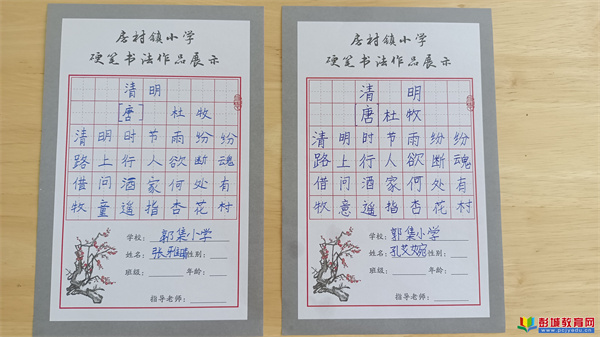 房村镇小学
硬笔书法作品展示
清明
[唐] 杜牧
清明时节雨纷纷
路上行人欲断魂
借问酒家何处有
牧童遥指杏花村
学校：郭集小学
姓名：张雅 性别：
班级： 年龄：
指导老师：
房村镇小学
硬笔书法作品展示
清明
唐 杜牧
清明时节雨纷纷
路上行人欲断魂
借问酒家何处有
牧意遥指杏花村
学校：郭集小学
姓名：孔艾婉 性别：
班级： 年龄：
指导老师：
彭城教育网
www.pcjyedu.cn